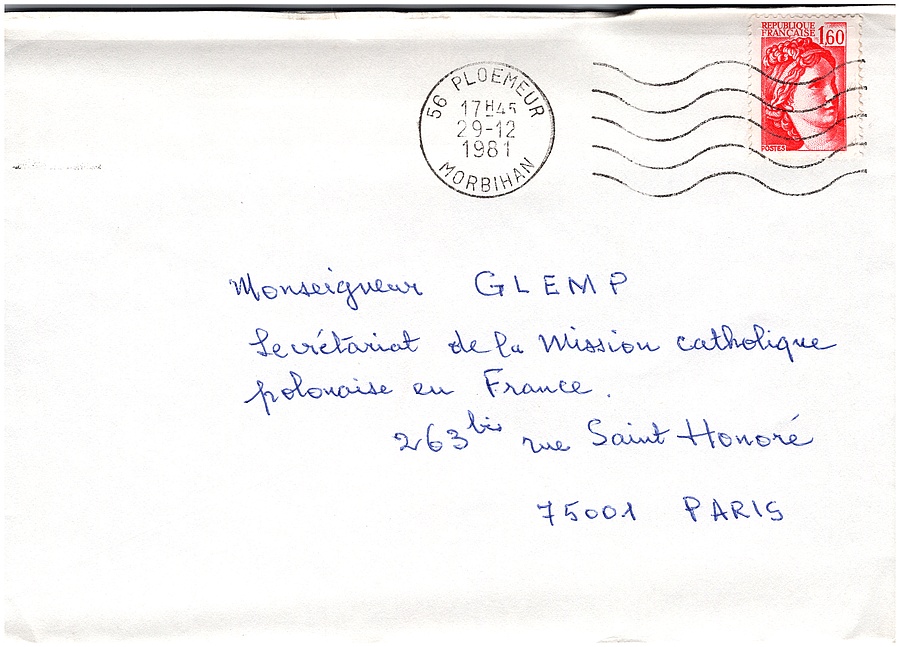 REPUBLIQUE
FRANCAISE 1,60
POSTES
56 PLOEMEUR
17H45
29-12
1981
MORBIHAN
Monseigneur GLEMP
Secrétariat de la Mission catholique
polonaise en France.
263bis rue Saint Honoré
75001 PARIS